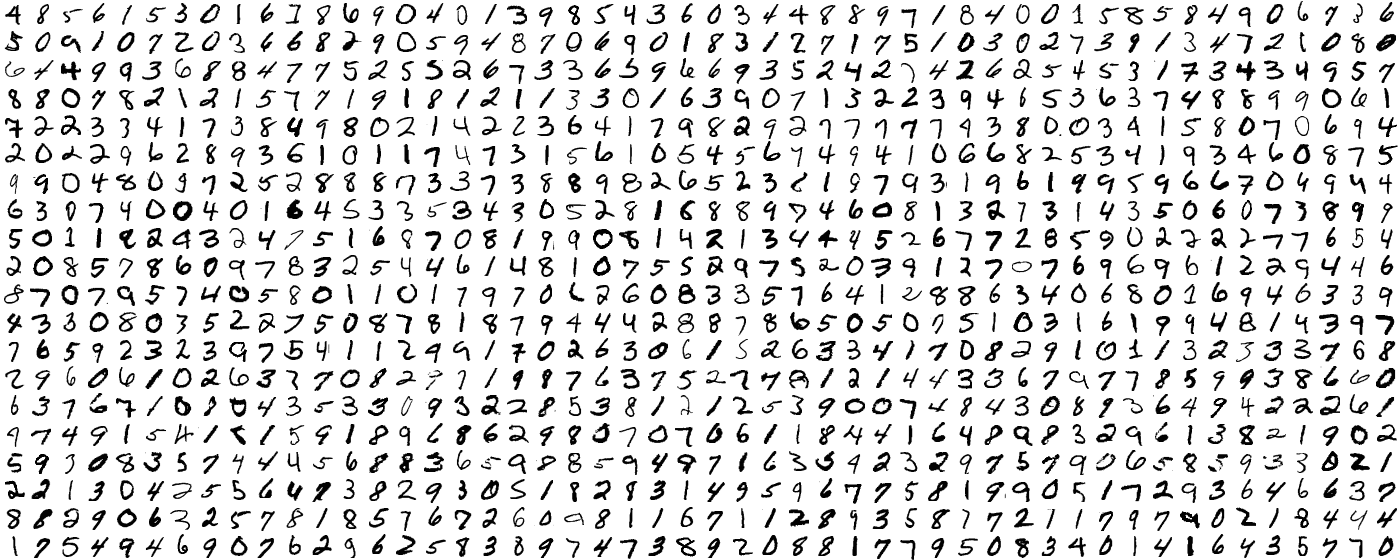 4 8 5 6 1 5 3 0 1 6 7 8 6 9 0 4 0 1 3 9 8 5 4 3 6 0 3 4 4 8 8 9 7 1 8 4 0 0 1 5 8 5 8 4 9 0 6 7 3 6
5 0 9 1 0 7 2 0 3 6 6 8 2 9 0 5 9 4 8 7 0 6 9 0 1 8 3 1 2 7 1 7 5 1 0 3 0 2 7 3 9 1 3 4 7 2 1 0 8 0
6 4 4 9 9 3 6 8 8 4 7 7 5 2 5 5 2 6 7 3 3 6 5 9 6 6 9 3 5 2 4 2 7 4 2 6 2 5 4 5 3 1 7 3 4 3 4 9 5 7
8 8 0 7 8 2 1 2 1 5 7 7 1 9 1 8 1 2 1 1 3 3 0 1 6 3 9 0 7 1 3 2 2 3 9 4 6 5 3 6 3 7 4 8 8 9 9 0 6 1
7 2 2 3 3 4 1 7 3 8 4 9 8 0 2 1 4 2 2 3 6 4 1 7 9 8 2 9 2 7 7 7 7 7 9 3 8 0 0 3 4 1 5 8 0 7 0 6 9 4
2 0 2 2 9 6 2 8 9 3 6 1 0 1 1 7 4 7 3 1 5 6 1 0 5 4 5 6 7 4 9 4 1 0 6 6 8 2 5 3 4 1 9 3 4 6 0 8 7 5
9 9 0 4 8 0 9 7 2 5 2 8 8 8 7 3 3 7 3 8 8 9 8 2 6 5 2 3 8 1 9 7 9 3 1 9 6 1 9 9 5 9 6 6 7 0 4 9 4 4
6 3 0 7 4 0 0 4 0 1 6 6 4 5 3 3 5 3 4 3 0 5 2 8 1 6 8 8 9 7 4 6 0 8 1 3 2 7 3 1 4 3 5 0 6 0 7 3 8 9 9
5 0 1 1 8 2 4 3 2 4 7 5 1 6 8 7 0 8 1 9 9 0 8 1 4 2 1 3 4 4 4 5 2 6 7 7 2 8 5 9 0 2 2 2 2 7 7 6 5 4
2 0 8 5 7 8 6 0 9 7 8 3 2 5 4 4 6 1 4 8 1 0 7 5 5 2 9 7 5 2 0 3 9 1 2 7 0 7 6 9 6 9 6 1 2 2 9 4 4 6
8 7 0 7 9 5 7 4 0 5 8 0 1 1 0 1 7 9 7 0 6 2 6 0 8 3 3 5 7 6 4 1 2 8 8 6 3 4 0 6 8 0 1 6 9 4 6 3 3 9
4 3 3 0 8 0 3 5 2 2 7 5 0 8 7 8 1 8 7 9 4 4 4 2 8 8 7 8 6 5 0 5 0 7 5 1 0 3 1 6 1 9 9 4 8 1 4 3 9 7
7 6 5 9 2 3 2 3 9 7 5 4 1 1 2 9 9 1 7 0 2 6 3 0 6 1 5 2 6 3 3 4 1 7 0 8 2 9 1 0 1 1 3 2 3 3 3 7 6 8
2 9 6 0 6 1 0 2 6 3 7 7 0 8 2 9 7 1 9 8 7 6 3 7 5 2 7 7 8 1 2 1 4 4 3 3 6 7 9 7 7 8 5 9 9 3 8 6 6 0
6 3 7 6 7 1 0 8 0 4 3 5 3 3 0 9 3 2 2 8 5 3 8 1 2 1 2 5 3 9 0 0 7 4 8 4 3 0 8 9 3 6 4 9 4 2 2 2 6 1
9 7 4 9 1 5 4 1 5 1 5 9 1 8 9 6 8 6 2 9 8 0 7 0 7 0 6 1 1 8 4 4 1 6 4 8 9 8 3 2 9 6 1 3 8 2 1 9 0 2
5 9 3 0 8 3 5 7 4 4 4 5 6 8 8 3 6 5 9 8 8 5 9 4 9 7 1 6 3 5 4 2 3 2 9 7 5 7 9 0 6 5 8 5 9 3 3 0 2 1
2 2 1 3 0 4 2 5 5 6 4 7 3 8 2 9 3 0 5 1 8 2 8 3 1 4 9 5 9 6 7 7 5 8 1 9 9 0 5 1 7 2 9 3 6 4 6 6 3 7
8 8 2 9 0 6 3 2 5 7 8 1 8 5 7 6 7 2 6 0 9 8 1 1 6 7 1 1 2 8 9 3 5 8 1 7 2 1 1 7 9 7 9 0 2 1 8 4 4 4
1 7 5 4 9 4 6 9 0 7 6 2 9 6 2 5 8 3 8 9 7 4 7 3 8 9 2 0 8 8 1 7 9 5 0 8 3 4 0 1 4 1 6 8 4 3 5 7 7 0